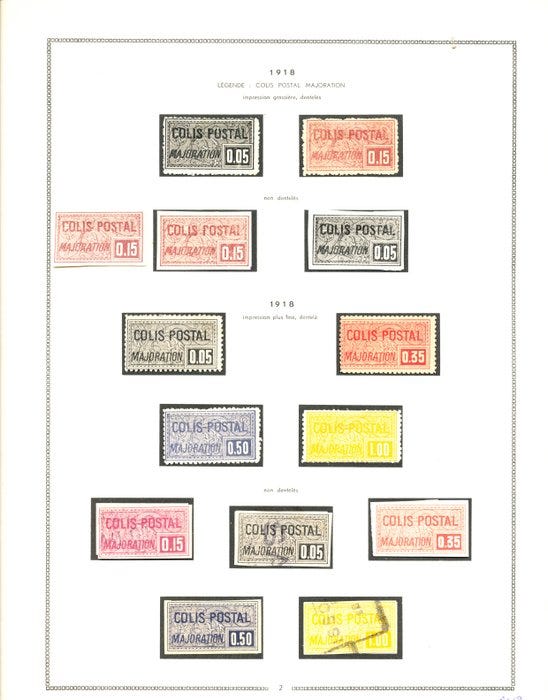 1918
LÉGENDE : COLIS POSTAL MAJORATION
impression grossière, dentelés
COLIS POSTAL
MAJORATION 0.05
COLIS POSTAL
MAJORATION 0.15
non dentelés
COLIS POSTAL
MAJORATION 0.15
COLIS POSTAL
MAJORATION 0.15
COLIS POSTAL
MAJORATION 0.05
1918
impression plus fine, dentelé
COLIS POSTAL
MAJORATION 0.05
COLIS POSTAL
MAJORATION 0.35
COLIS POSTAL
MAJORATION 0.50
COLIS POSTAL
MAJORATION 1.00
non dentelés
COLIS POSTAL
MAJORATION 0.15
COLIS POSTAL
MAJORATION 0.05
COLIS POSTAL
MAJORATION 0.35
COLIS POSTAL
MAJORATION 0.50
COLIS POSTAL
MAJORATION 1.00
2